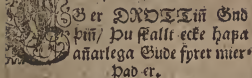 G er DROTTiñ Gud
þiñ/ Þu skallt ecke hafa
añarlega Gude fyrer mier.
Þad er.